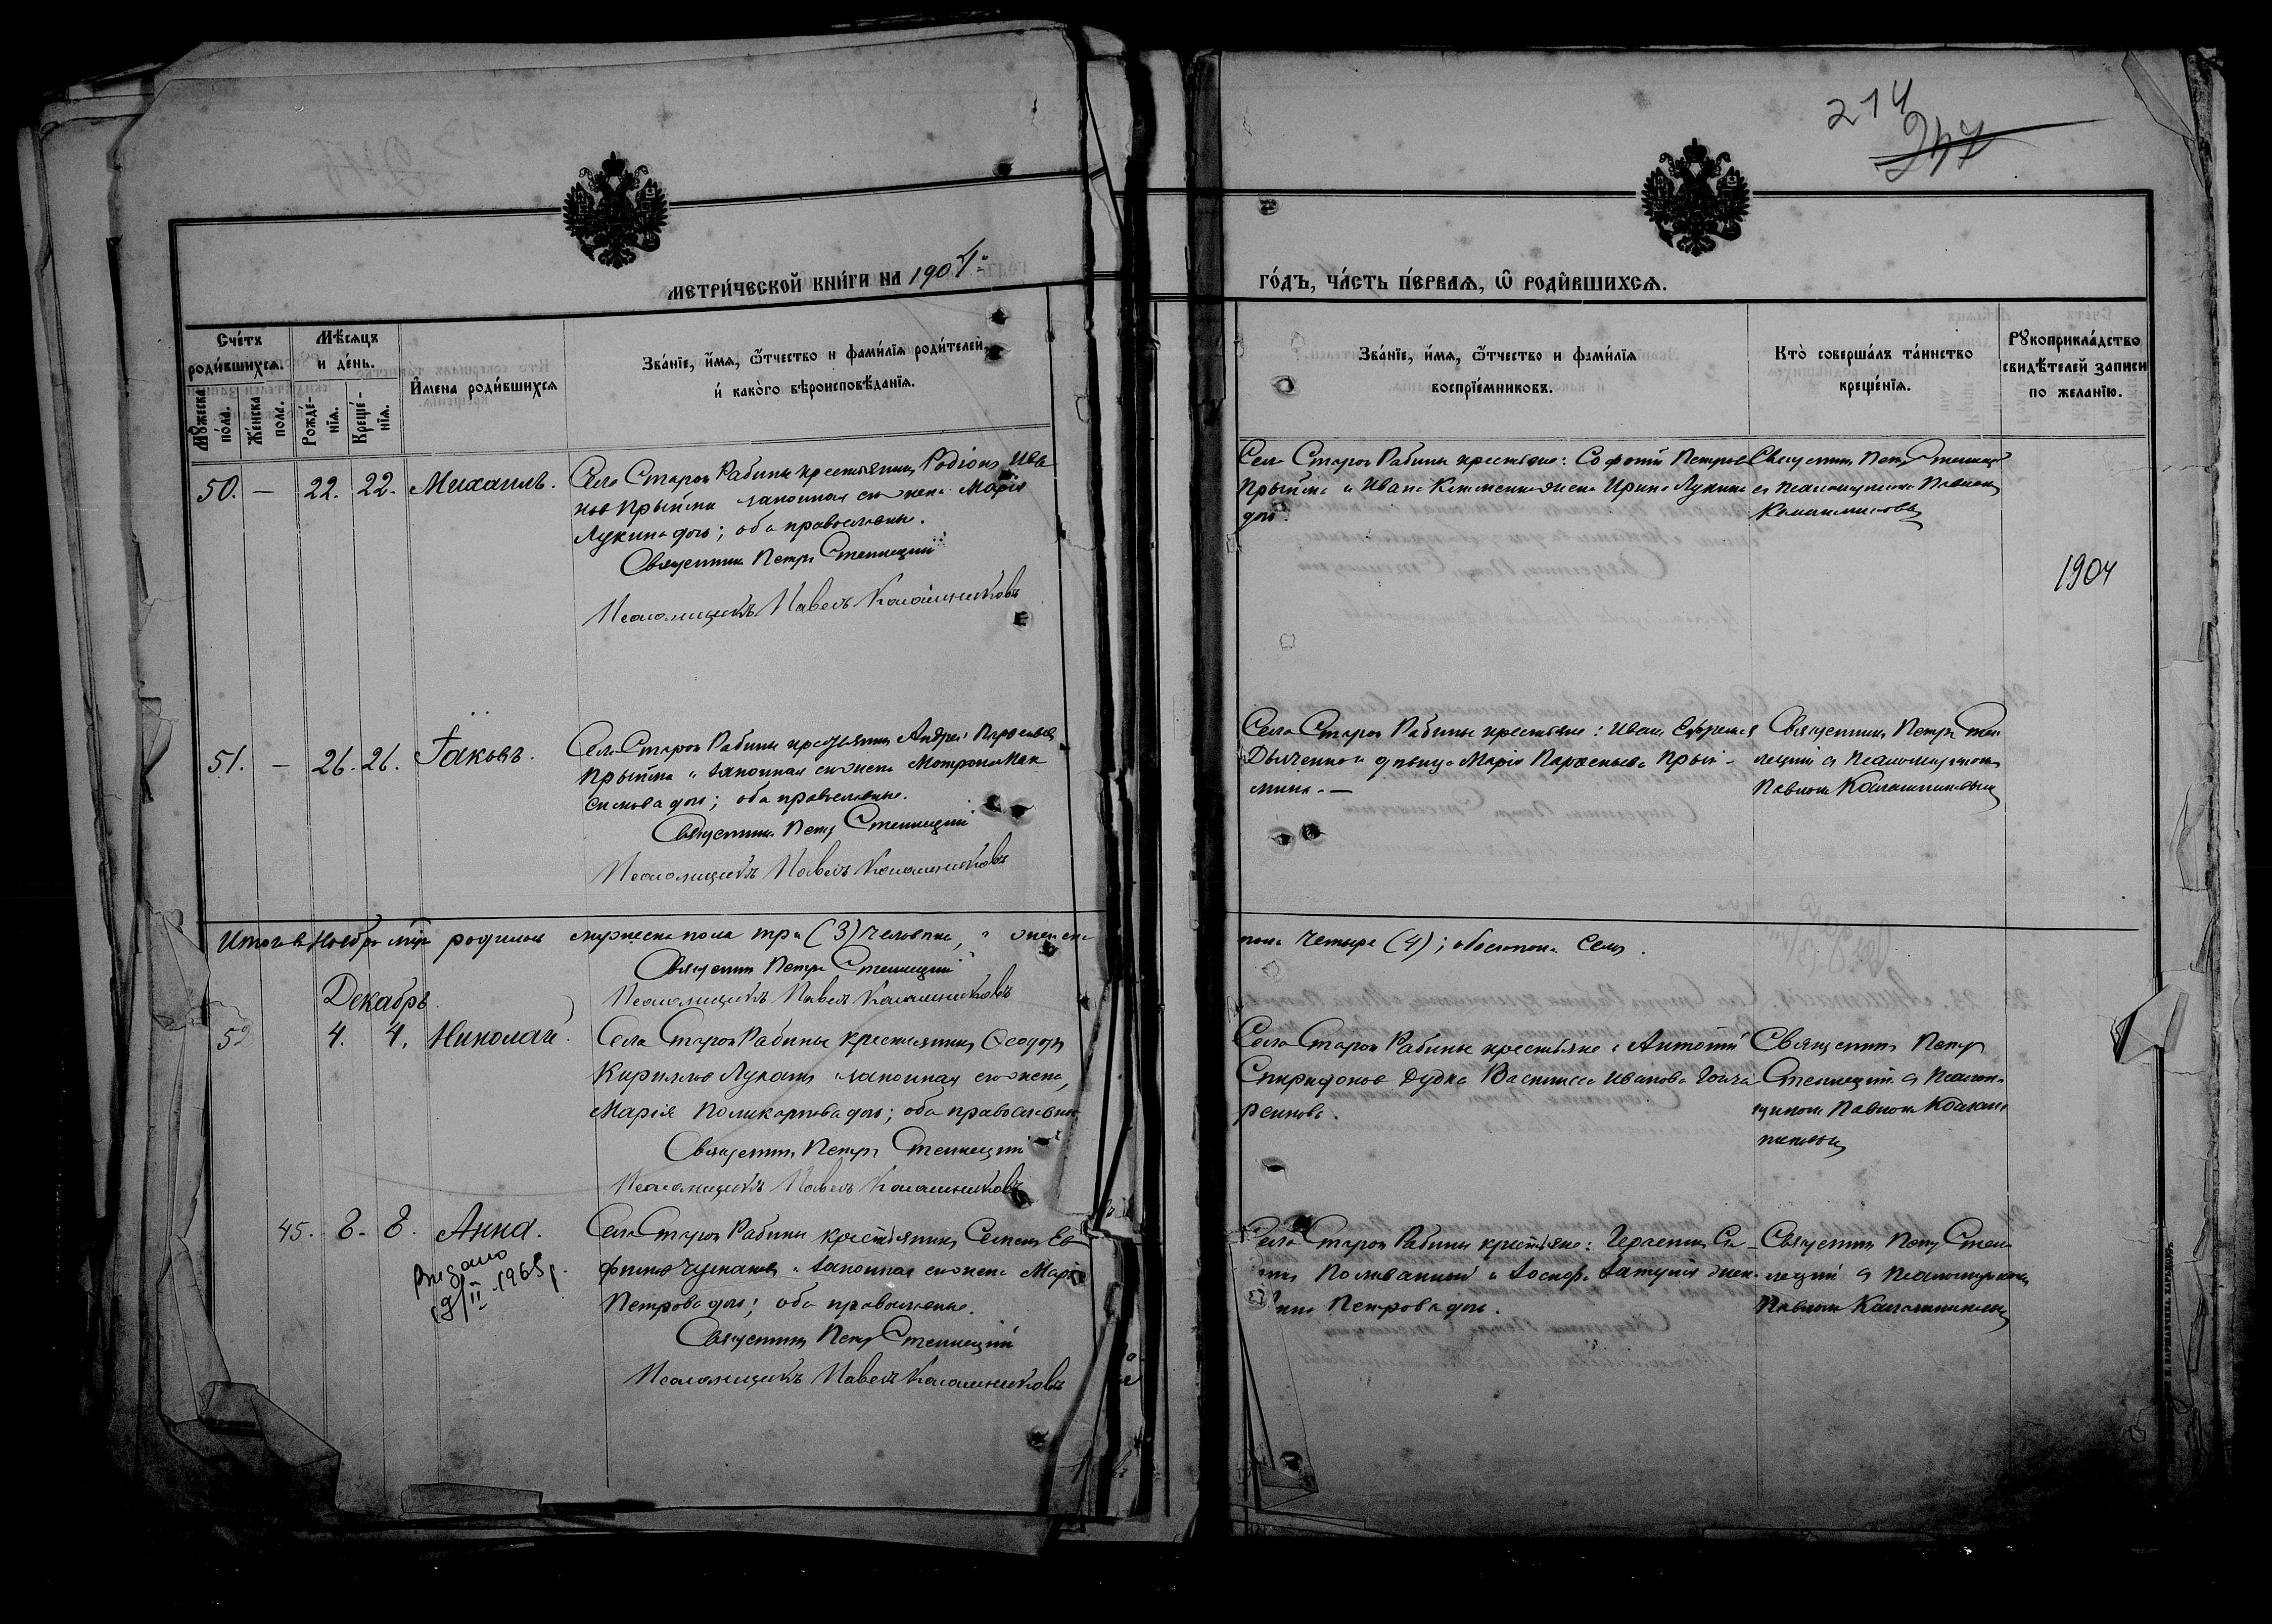 214
247
МЕТРИ́ЧЕСКОЙ КНИ́ГИ НА 1904
ГО́ДЪ, ЧА́СТЬ ПЕ́РВАЯ, Ѡ҆ РОДИ́ВШИХСЯ.
Сче́тъ роди́вшихся.
Мꙋ́жеска по́ла.
Же́нска пола.
Мѣ́сяцъ и де́нь.
Рожде́нія.
Креще́нія.
И́мена роди́вшихся
Зва́ніе, и́мя, ѻ҆́тчество и фами́лія роди́телей,
и́ како́го вѣроисповѣ́данія.
Зва́ніе, и́мя, ѻ҆́тчество и фами́лія
воспріе́мниковъ.
Кто̀ соверша́лъ та́инство
креще́нія.
Рꙋкоприкла́дство
свидѣ́телей записи
по жела́нію.
50. — 22. 22. Михаилъ.
Села Старой Рабины крестьянинъ Родіонъ Ива
новъ Прыйма законная его жена Марія
Лукина дочь; оба православные.
Священникъ Петръ Стеллецкій
Псаломщикъ Павелъ Калашниковъ
Села Старой Рабины крестьяне: Петровъ
Прыйма и Ивана жена Ирина Лукина
дочь.
Священникъ Петръ Стеллецкій
съ псаломщикомъ Павломъ
Калашниковымъ
1904
51. — 26. 26. Іаковъ.
Села Старой Рабины крестьянинъ Андрей
Прыйма и законная его жена Мотрона Мак
симова дочь; оба православные.
Священникъ Петръ Стеллецкій
Псаломщикъ Павелъ Калашниковъ
Села Старой Рабины крестьяне: Иванъ
и дѣвица Марія Прый-
мина. —
Священникъ Петръ Стел
лецкій съ псаломщикомъ
Павломъ Калашниковымъ
Итого въ Ноябрѣ м-цѣ родилось мужеска пола три (3) человѣка, а женска
пола четыре (4); обоего пола семь.
Священникъ Петръ Стеллецкій
Псаломщикъ Павелъ Калашниковъ
Декабрь.
52 4. 4. Николай.
Села Старой Рабины крестьянинъ Ѳеодоръ
Кирилловъ законная его жена
Марія Поликарпова дочь; оба православные
Священникъ Петръ Стеллецкій
Псаломщикъ Павелъ Калашниковъ
Села Старой Рабины крестьяне: Антоній
Спиридоновъ Дудка Василисса Иванова
Священникъ Петръ
Стеллецкій съ псалом-
щикомъ Павломъ Калаш
никовымъ
45. 8. 8. Анна.
Видано
19/II 1965 г.
Села Старой Рабины крестьянинъ Семенъ Ев
фимовъ и законная его жена Марія
Петрова дочь; оба православные.
Священникъ Петръ Стеллецкій
Псаломщикъ Павелъ Калашниковъ
Села Старой Рабины крестьяне: Герасимъ
Поливанный и жен-
Петрова дочь.
Священникъ Петръ Стел
лецкій съ псаломщикомъ
Павломъ Калашниковымъ